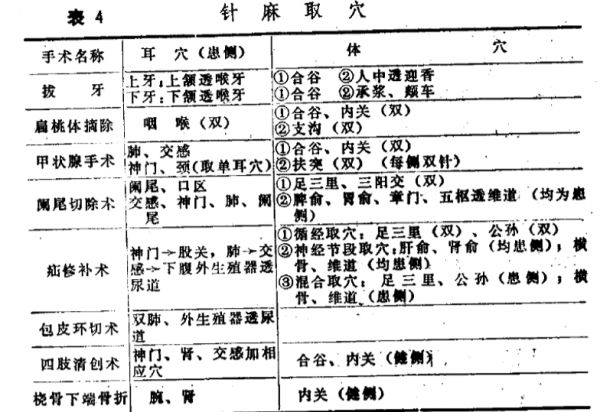 表 4 针 麻 取 穴
手术名称 耳 穴 (患侧) 体 穴
拔 牙 上牙:上颌透喉牙 ①合谷 ②人中透迎香
下牙:下颌透喉牙 ①合谷 ②承浆、颊车
扁桃体摘除 咽 喉 (双) ①合谷、内关 (双)
②支沟 (双)
甲状腺手术 肺、交感 ①合谷、内关 (双)
神门、颈(取单耳穴) ②扶突 (双) (每侧双针)
阑尾切除术 阑尾、口区 ①足三里、三阳交 (双)
交感、神门、肺、阑 ②脾俞、胃俞、章门、五枢透维道 (均为患
尾 侧)
疝修补术 神门→股关,肺→交 ①循经取穴:足三里 (双) 、公孙 (双)
感→下腹外生殖器透 ②神经节段取穴:肝俞、肾俞 (均患侧);横
尿道 骨、维道 (均患侧)
③混合取穴: 足三里、公孙 (患侧) ;横
骨、维道 (患侧)
包皮环切术 双肺、外生殖器透尿
道
四肢清创术 神门、肾、交感加相 合谷、内关 (健侧)
应穴
桡骨下端骨折 腕、肾 内关 (健侧)